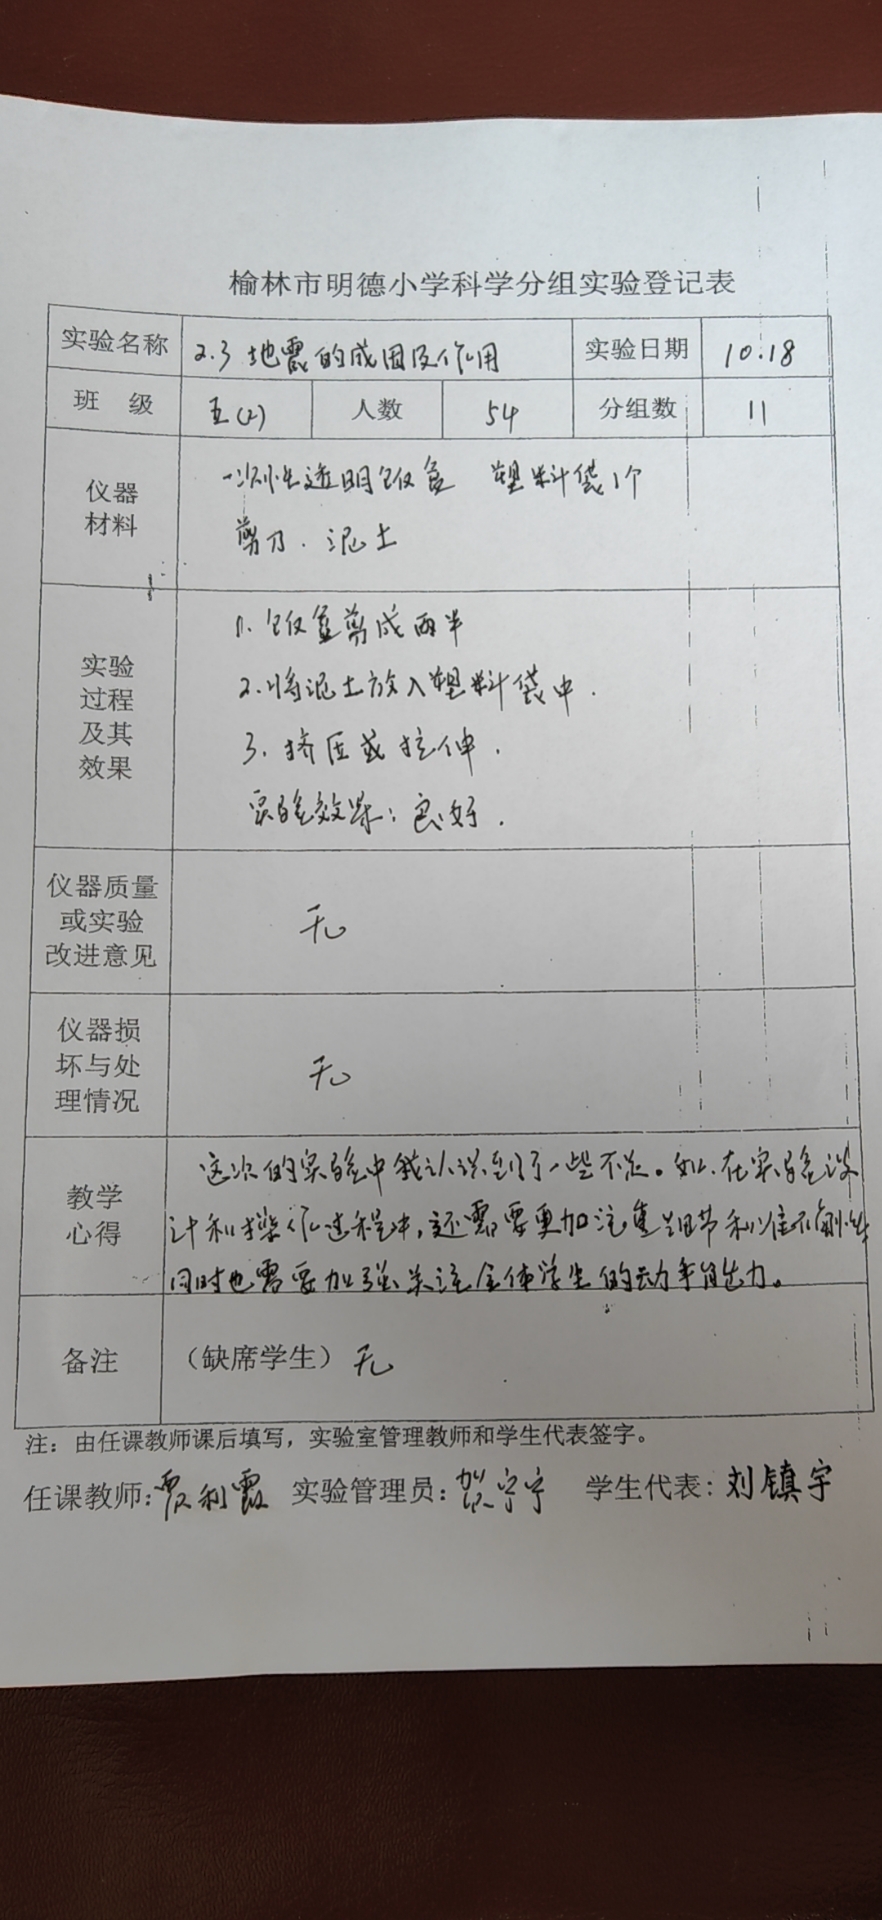 榆林市明德小学科学分组实验登记表
实验名称 2.3 地震的成因及作用 实验日期 10.18
班 级 五(2) 人数 54 分组数 11
仪器材料 一次性透明饭盒 塑料袋1个
剪刀. 泥土
实验过程及其效果 1. 饭盒剪成两半
2. 将泥土放入塑料袋中.
3. 挤压或拉伸.
实验效果: 良好.
仪器质量或实验改进意见 无
仪器损坏与处理情况 无
教学心得 这次的实验中我认识到了一些不足。如.在实验设
计和操作过程中,还需要更加注重细节和准确性
同时也需要加强关注全体学生的动手能力。
备注 (缺席学生) 无
注：由任课教师课后填写，实验室管理教师和学生代表签字。
任课教师: 贾利霞 实验管理员: 贺宁宁 学生代表: 刘镇宇